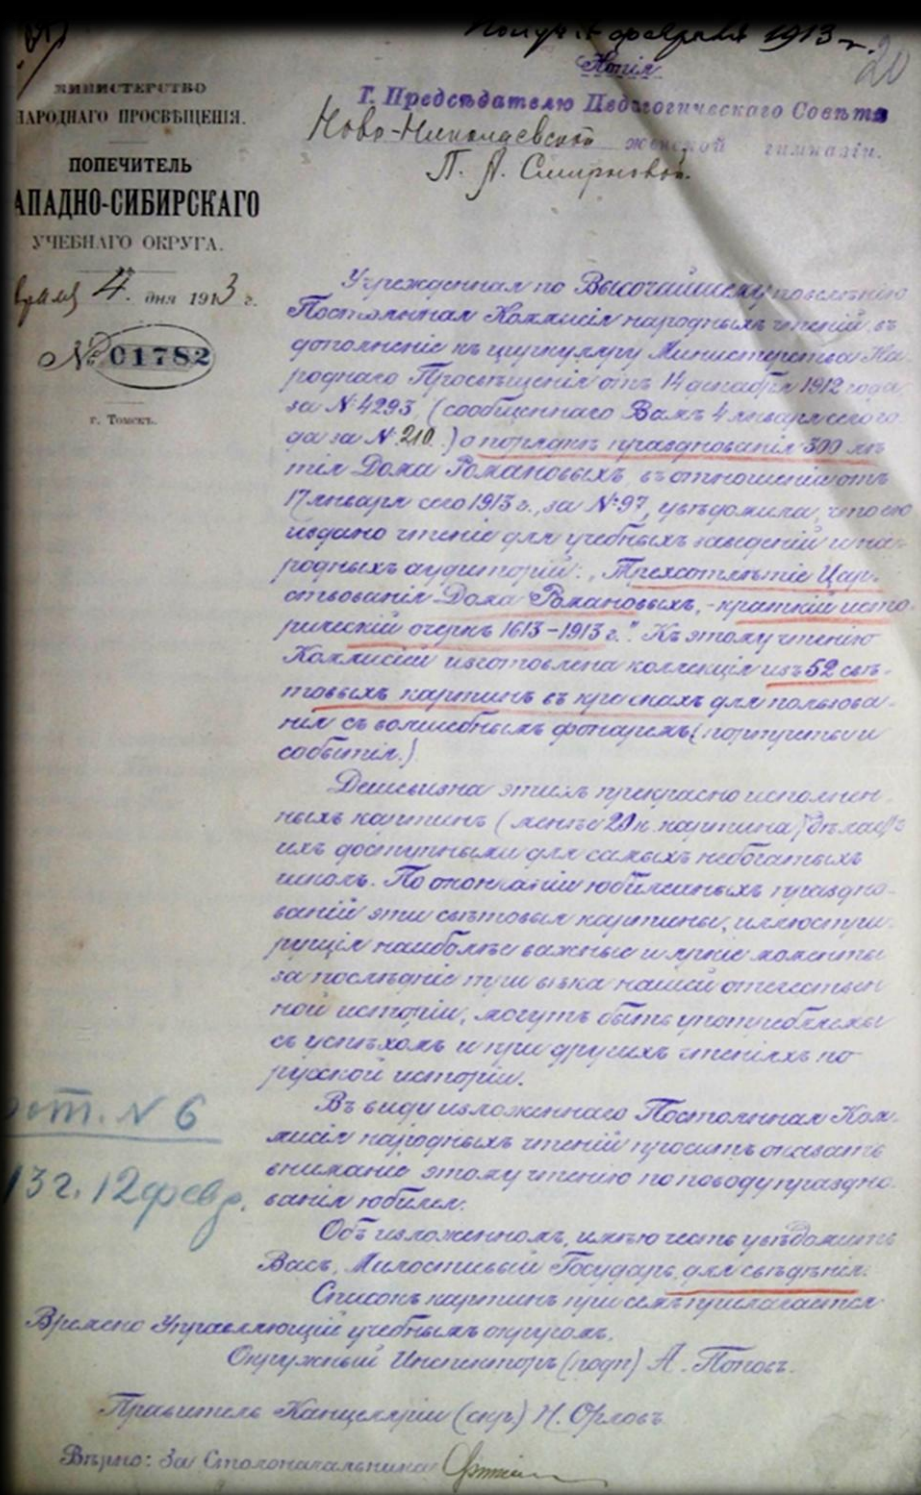 Получ. 11 февраля 1913 г.
20
Копія
МИНИСТЕРСТВО
НАРОДНАГО ПРОСВѢЩЕНІЯ.
ПОПЕЧИТЕЛЬ
ЗАПАДНО-СИБИРСКАГО
УЧЕБНАГО ОКРУГА.
4. дня 1913 г.
№ 01782
г. Томскъ.
Г. Предсѣдателю Педагогическаго Совѣта
Ново-Николаевской женской гимназіи.
П. А. Смирновой.
Учрежденная по Высочайшему повелѣнію
Постоянная Коммисія народныхъ чтеній, въ
дополненіе къ циркуляру Министерства На-
роднаго Просвѣщенія отъ 14 декабря 1912 года
за № 4293, (сообщеннаго Вамъ 4 января сего го-
да за № 210.) о порядкѣ празднованія 300 лѣ-
тія Дома Романовыхъ, въ отношеніи отъ
17 января сего 1913 г., за № 97, увѣдомила, что ею
издано чтеніе для учебныхъ заведеній и на-
родныхъ аудиторій: „Трехсотлѣтіе Цар-
ствованія Дома Романовыхъ, - краткій исто-
рическій очеркъ 1613-1913 г." Къ этому чтенію
Коммисіей изготовлена коллекція изъ 52 свѣ-
товыхъ картинъ въ краскахъ для пользова-
нія съ волшебнымъ фонаремъ (портреты и
событія.)
Дешевизна этихъ прекрасно исполнен-
ныхъ картинъ (менѣе 20 к. картина) дѣлаетъ
ихъ доступными для самыхъ небогатыхъ
школъ. По окончаніи юбилейныхъ праздно-
ваній эти свѣтовыя картины, иллюстри-
рующія наиболѣе важные и яркіе моменты
за послѣдніе три вѣка нашей отечествен-
ной исторіи, могутъ быть употребляемы
съ успѣхомъ и при другихъ чтеніяхъ по
русской исторіи.
Въ виду изложеннаго Постоянная Ком-
мисія народныхъ чтеній проситъ оказать
вниманіе этому чтенію по поводу праздно-
ванія юбилея.
Объ изложенномъ, имѣю честь увѣдомить
Васъ, Милостивый Государь, для свѣдѣнія.
Списокъ картинъ при семъ прилагается
Времено Управляющій учебнымъ округомъ,
Окружный Инспекторъ (подп) А. Поповъ.
Правитель Канцеляріи (скр.) Н. Орловъ
Вѣрно: За Столоначальника
от. № 6
13 г. 12 февр.